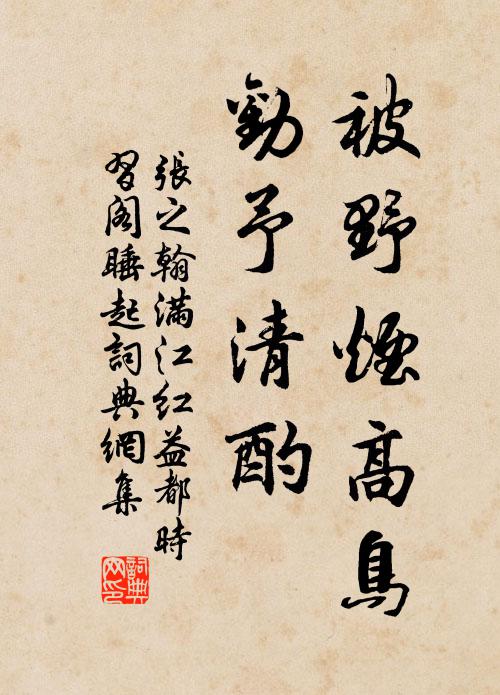 被野煙高鳥
勸予清酌
張之翰滿江紅益都時
習閣睡起詞典網集
詞典网印